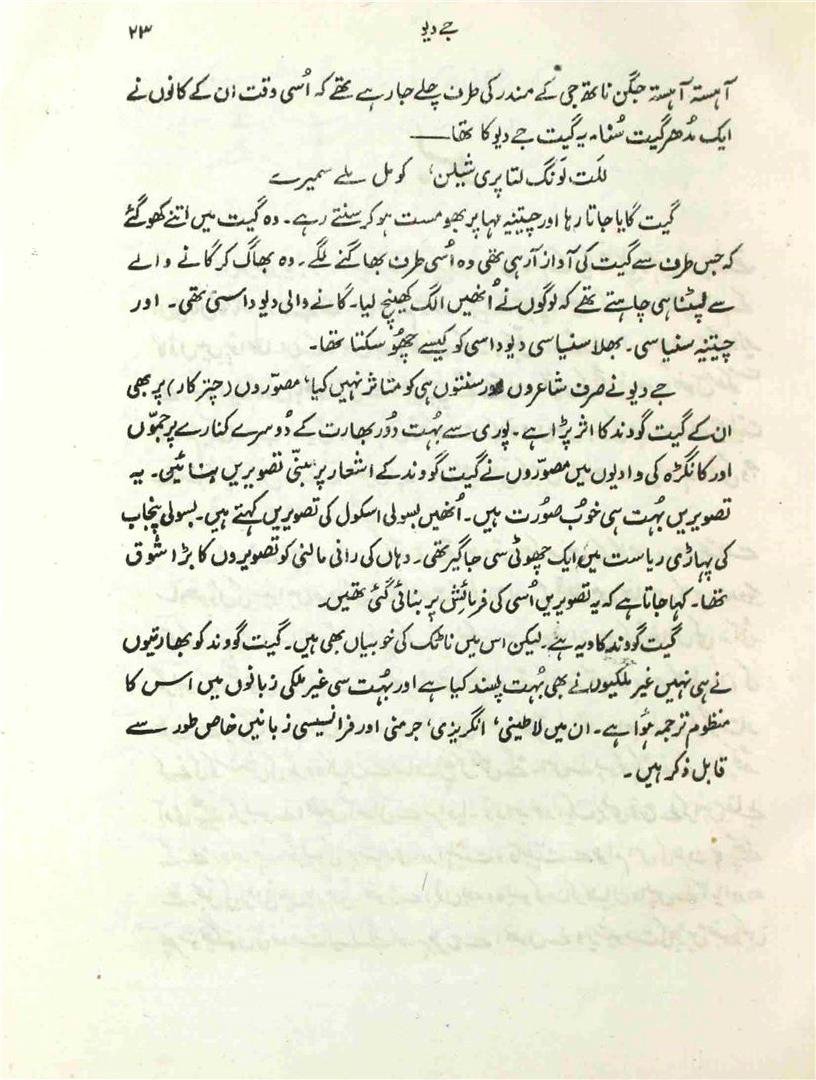 جے دیو ۲۳
آہستہ آہستہ جگن ناتھ جی کے مندر کی طرف چلے جا رہے تھے کہ اُسی وقت ان کے کانوں نے
ایک مُدھر گیت سُنا، یہ گیت جے دیو کا تھا—
للت لَونگ لتا پری شیلن، کومل ملے سمیرے
گیت گایا جاتا رہا اور چیتنیہ مہا پربھو مست ہو کر سنتے رہے۔ وہ گیت میں اتنے کھو گئے
کہ جس طرف سے گیت کی آواز آ رہی تھی وہ اُسی طرف بھاگنے لگے۔ وہ بھاگ کر گانے والے
سے لپٹنا ہی چاہتے تھے کہ لوگوں نے اُنھیں الگ کھینچ لیا۔ گانے والی دیو داسی تھی۔ اور
چیتنیہ سنیاسی۔ بھلا سنیاسی دیو داسی کو کیسے چھُو سکتا تھا۔
جے دیو نے صرف شاعروں اور سنتوں ہی کو متاثر نہیں کیا، مصوّروں (چترکار) پر بھی
ان کے گیت گووند کا اثر پڑا ہے۔ پوری سے بہُت دُور بھارت کے دُوسرے کنارے پر جمّوں
اور کانگڑہ کی وادیوں میں مصوّروں نے گیت گووند کے اشعار پر مبنّی تصویریں بنائیں۔ یہ
تصویریں بہُت ہی خوبُ صورت ہیں۔ اُنھیں بسولی اسکول کی تصویریں کہتے ہیں۔ بسولی پنجاب
کی پہاڑی ریاست میں ایک چھوٹی سی جاگیر تھی۔ وہاں کی رانی مالنی کو تصویروں کا بڑا شوق
تھا۔ کہا جاتا ہے کہ یہ تصویریں اُسی کی فرمائش پر بنائی گئی تھیں۔
گیت گووند کاویہ ہے۔ لیکن اس میں ناٹک کی خوبیاں بھی ہیں۔ گیت گووند کو بھارتیوں
نے ہی نہیں غیر ملکیوں نے بھی بہُت پسند کیا ہے اور بہُت سی غیر ملکی زبانوں میں اس کا
منظوم ترجمہ ہوُا ہے۔ ان میں لاطینی، انگریزی، جرمنی اور فرانسیسی زبانیں خاص طور سے
قابل ذکر ہیں۔